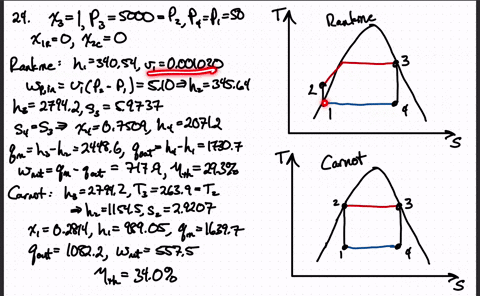 24. x₃=1, P₃=5000=P₂, P₄=P₁=50
x₁R=0, x₂C=0
Rankine: h₁=340.54, v₁=0.001030
wp,in=v₁(P₂-P₁)=5.10⇒h₂=345.64
h₃=2794.2, s₃=5.9737
s₄=s₃⇒x₄=0.7509, h₄=2071.2
qin=h₃-h₂=2448.6, qout=h₄-h₁=1730.7
wnet=qin-qout=717.9, ηth=29.3%
Carnot: h₃=2794.2, T₃=263.9=T₂
⇒h₂=1154.5, s₂=2.9207
x₁=0.2814, h₁=989.05, qin=1639.7
qout=1082.2, wnet=557.5
ηth=34.0%
T Rankine
2 3
1 4
s
T Carnot
2 3
1 4
s